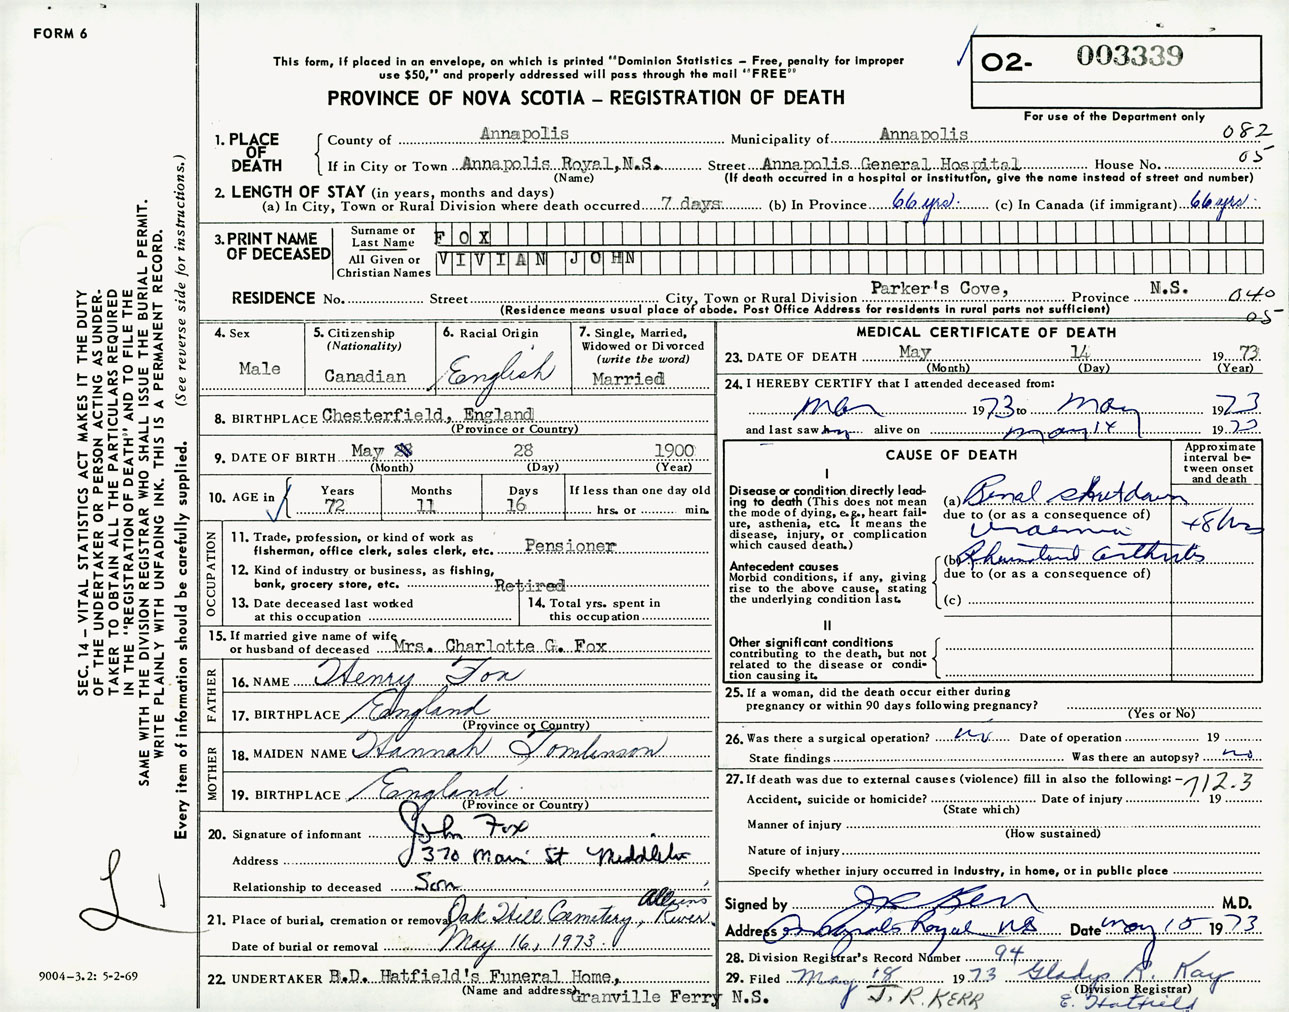 FORM 6
This form, if placed in an envelope, on which is printed "Dominion Statistics – Free, penalty for improper
use $50," and properly addressed will pass through the mail "FREE"
PROVINCE OF NOVA SCOTIA – REGISTRATION OF DEATH
O2- 003339
For use of the Department only
082
05
1. PLACE OF DEATH
County of Annapolis Municipality of Annapolis
If in City or Town Annapolis Royal, N.S. Street Annapolis General Hospital House No.
(Name) (If death occurred in a hospital or institution, give the name instead of street and number)
2. LENGTH OF STAY (in years, months and days)
(a) In City, Town or Rural Division where death occurred 7 days (b) In Province 66 yrs. (c) In Canada (if immigrant) 66 yrs.
3. PRINT NAME OF DECEASED
Surname or Last Name FOX
All Given or Christian Names VIVIAN JOHN
RESIDENCE No. Street City, Town or Rural Division Parker's Cove, Province N.S. 040
(Residence means usual place of abode. Post Office Address for residents in rural parts not sufficient) 05
4. Sex
Male
5. Citizenship
(Nationality)
Canadian
6. Racial Origin
English
7. Single, Married,
Widowed or Divorced
(write the word)
Married
8. BIRTHPLACE Chesterfield, England
(Province or Country)
9. DATE OF BIRTH May 28 1900
(Month) (Day) (Year)
10. AGE in
Years Months Days If less than one day old
72 11 16 hrs. or min.
OCCUPATION
11. Trade, profession, or kind of work as
fisherman, office clerk, sales clerk, etc. Pensioner
12. Kind of industry or business, as fishing,
bank, grocery store, etc. Retired
13. Date deceased last worked
at this occupation
14. Total yrs. spent in
this occupation
15. If married give name of wife
or husband of deceased Mrs. Charlotte G. Fox
FATHER
16. NAME Henry Fox
17. BIRTHPLACE England
(Province or Country)
MOTHER
18. MAIDEN NAME Hannah Tomlinson
19. BIRTHPLACE England
(Province or Country)
20. Signature of informant John Fox
Address 370 Main St Middleton
Relationship to deceased Son
21. Place of burial, cremation or removal Oak Hill Cemetery, Allains River
Date of burial or removal May 16, 1973.
22. UNDERTAKER B.D. Hatfield's Funeral Home,
(Name and address) Granville Ferry N.S.
MEDICAL CERTIFICATE OF DEATH
23. DATE OF DEATH May 14 1973
(Month) (Day) (Year)
24. I HEREBY CERTIFY that I attended deceased from:
Mar 1973 to May 1973
and last saw him alive on May 14 1973
CAUSE OF DEATH
Approximate
interval be-
tween onset
and death
I
Disease or condition directly lead-
ing to death (This does not mean
the mode of dying, e.g., heart fail-
ure, asthenia, etc. It means the
disease, injury, or complication
which caused death.)
(a) Renal shutdown
due to (or as a consequence of)
Uraemia
+8 hrs
(b) Rheumatoid Arthritis
due to (or as a consequence of)
(c)
Antecedent causes
Morbid conditions, if any, giving
rise to the above cause, stating
the underlying condition last.
II
Other significant conditions
contributing to the death, but not
related to the disease or condi-
tion causing it.
25. If a woman, did the death occur either during
pregnancy or within 90 days following pregnancy?
(Yes or No)
26. Was there a surgical operation? no Date of operation 19
State findings Was there an autopsy? no
27. If death was due to external causes (violence) fill in also the following: – 712.3
Accident, suicide or homicide? Date of injury 19
(State which)
Manner of injury
(How sustained)
Nature of injury
Specify whether injury occurred in industry, in home, or in public place
Signed by J R Kerr M.D.
Address Annapolis Royal NS Date May 15 1973
28. Division Registrar's Record Number 94
29. Filed May 18 1973 Gladys R. Kay
(Division Registrar)
J. R. KERR E. Hatfield
SEC. 14 – VITAL STATISTICS ACT MAKES IT THE DUTY
OF THE UNDERTAKER OR PERSON ACTING AS UNDER-
TAKER TO OBTAIN ALL THE PARTICULARS REQUIRED
IN THE "REGISTRATION OF DEATH" AND TO FILE THE
SAME WITH THE DIVISION REGISTRAR WHO SHALL ISSUE THE BURIAL PERMIT.
WRITE PLAINLY WITH UNFADING INK. THIS IS A PERMANENT RECORD.
Every item of information should be carefully supplied. (See reverse side for instructions.)
9004-3.2: 5-2-69